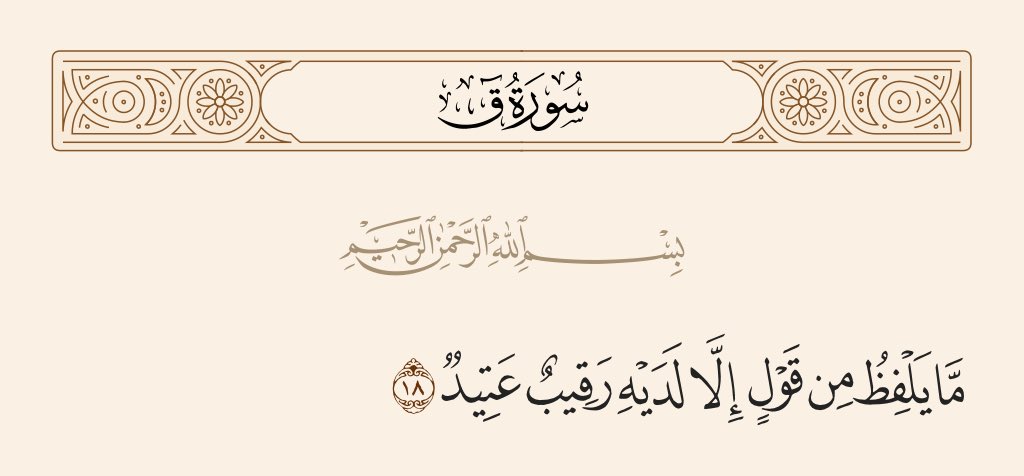 سُورَةُ ق
بِسْمِ ٱللَّهِ ٱلرَّحْمَٰنِ ٱلرَّحِيمِ
مَّا يَلْفِظُ مِن قَوْلٍ إِلَّا لَدَيْهِ رَقِيبٌ عَتِيدٌ ١٨